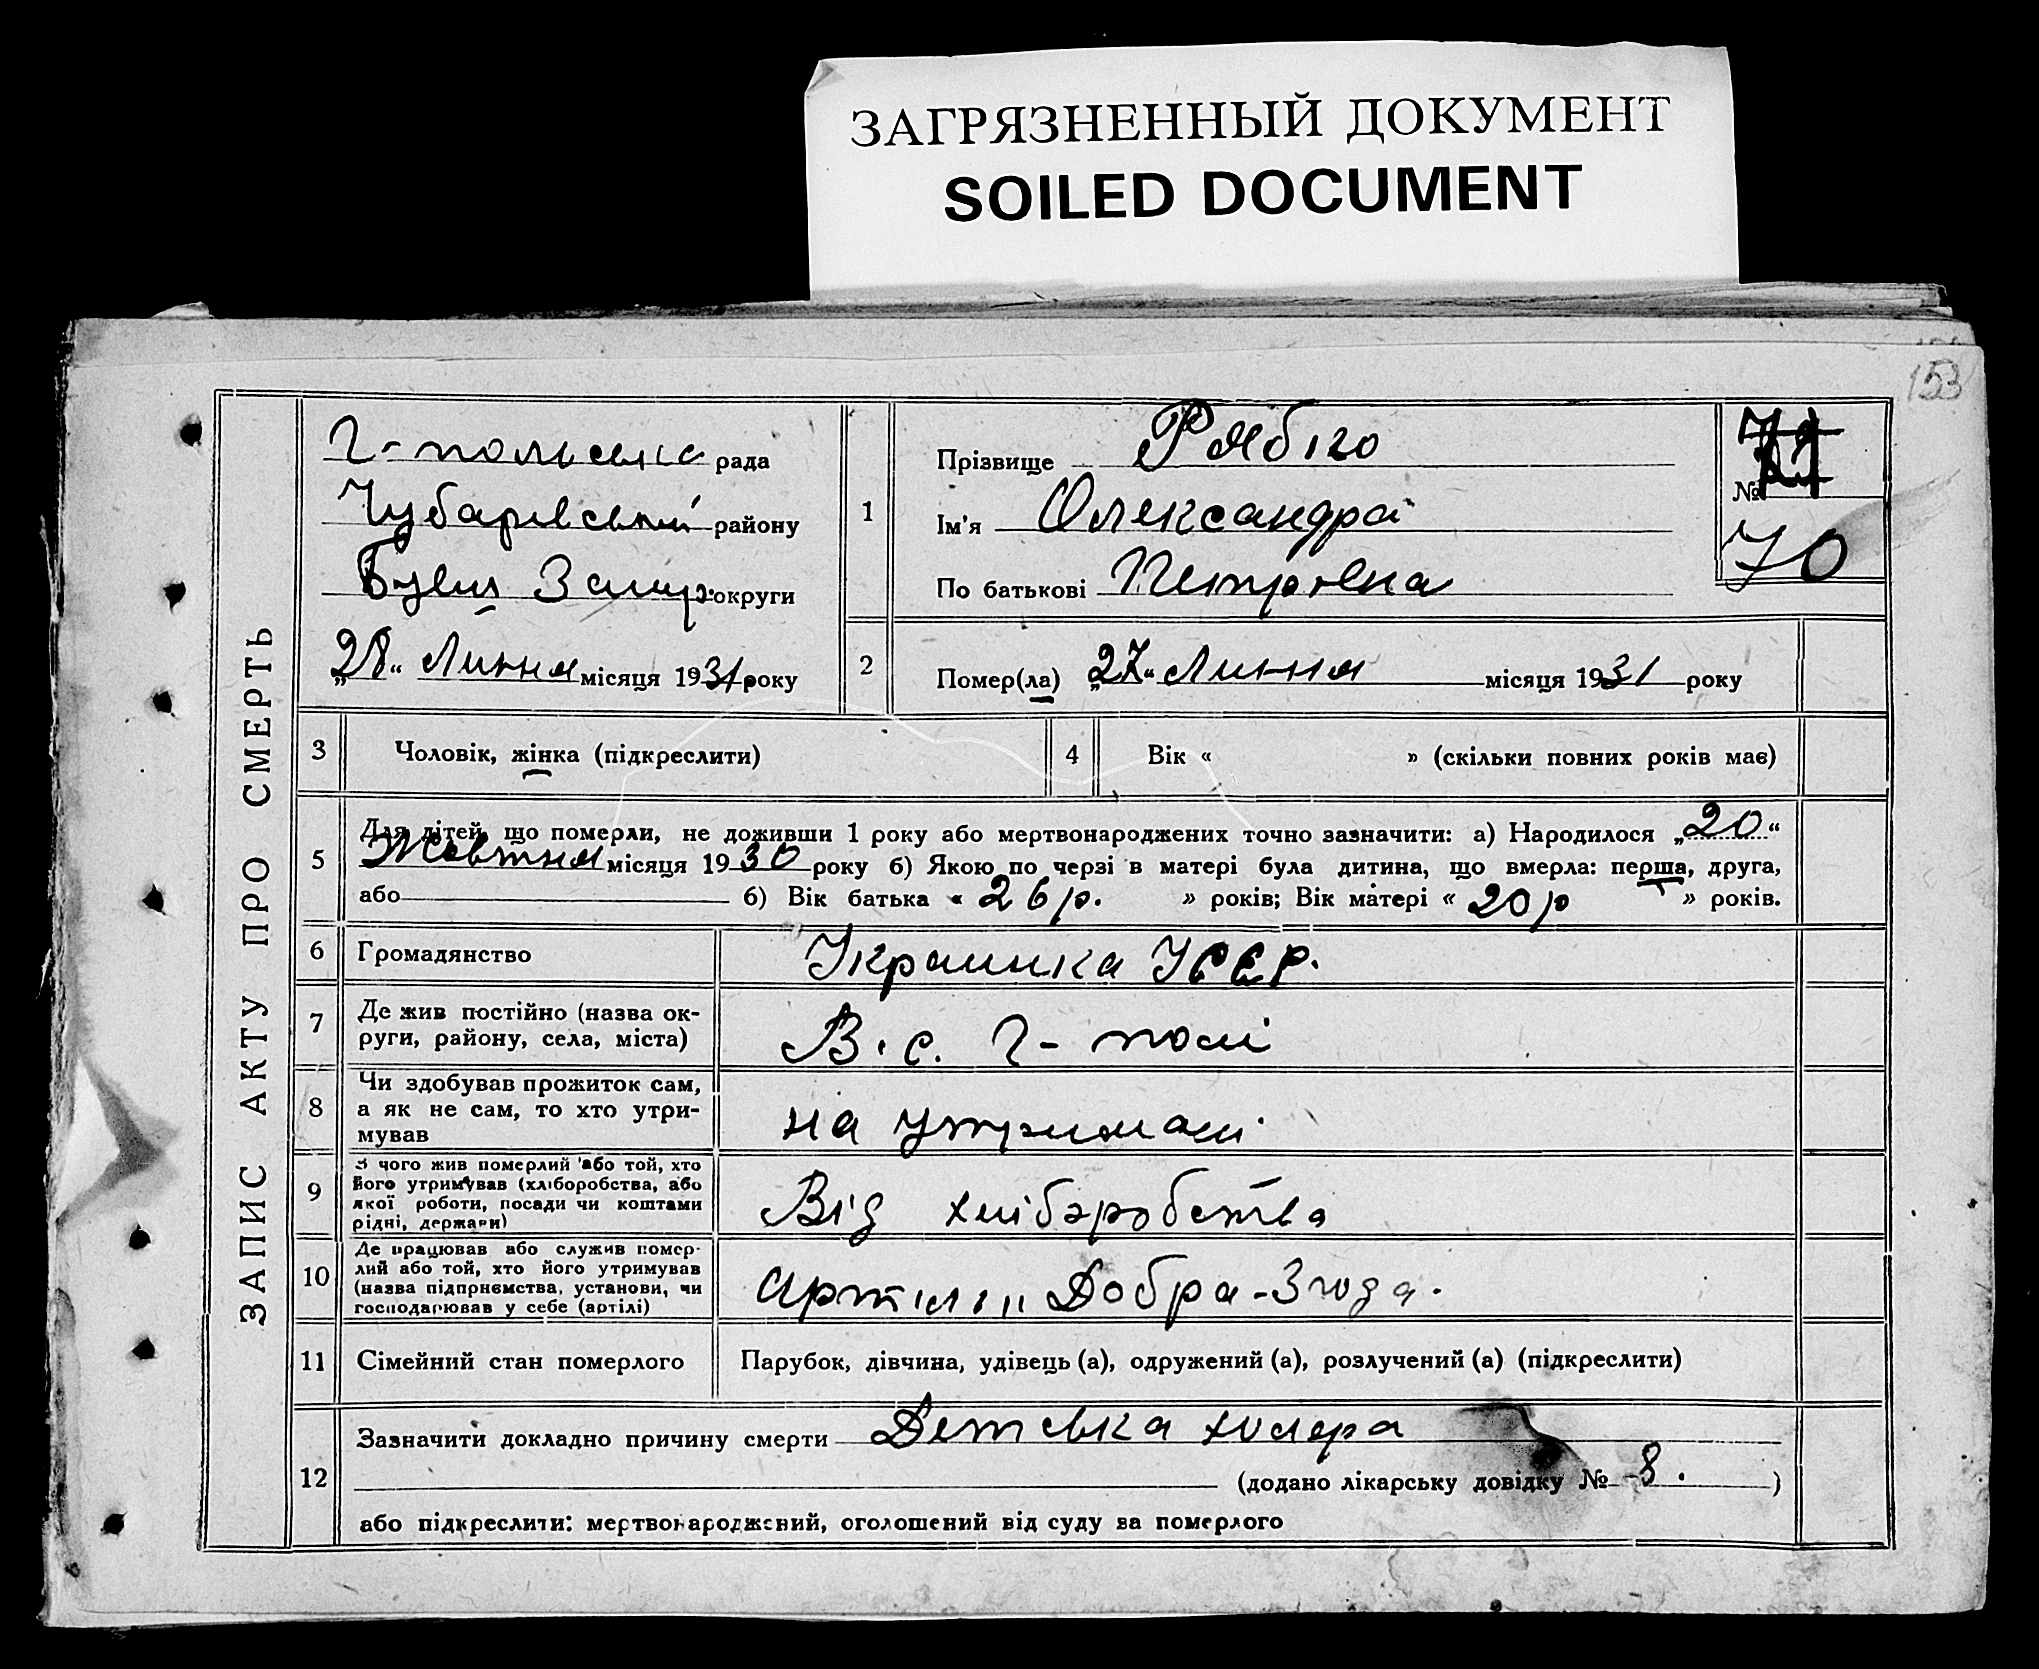 ЗАГРЯЗНЕННЫЙ ДОКУМЕНТ
SOILED DOCUMENT
153
ЗАПИС АКТУ ПРО СМЕРТЬ
Г-польська рада
Чубарівський району
округи
„28“ Липня місяця 1931 року
1
Прізвище Рябіго
Ім'я Олександра
По батькові Петровна
№ 71
70
2
Помер(ла) „27“ Липня місяця 1931 року
3 Чоловік, жінка (підкреслити)
4 Вік « » (скільки повних років має)
5
Для дітей, що померли, не доживши 1 року або мертвонароджених точно зазначити: а) Народилося „20“
Жовтня місяця 1930 року б) Якою по черзі в матері була дитина, що вмерла: перша, друга,
або б) Вік батька « 26 р. » років; Вік матері « 20 р » років.
6 Громадянство Украинка УССР.
7
Де жив постійно (назва ок-
руги, району, села, міста)
В. с. Г-полі
8
Чи здобував прожиток сам,
а як не сам, то хто утри-
мував
на утримані
9
З чого жив померлий або той, хто
його утримував (хліборобства, або
якої роботи, посади чи коштами
рідні, держави)
Від хліборобства
10
Де працював або служив помер-
лий або той, хто його утримував
(назва підприємства, установи, чи
господарював у себе (артілі)
Артілі „ Добра-Згода.
11 Сімейний стан померлого Парубок, дівчина, удівець (а), одружений (а), розлучений (а) (підкреслити)
12
Зазначити докладно причину смерти Детська холера
(додано лікарську довідку № 8. )
або підкреслити: мертвонароджений, оголошений від суду за померлого